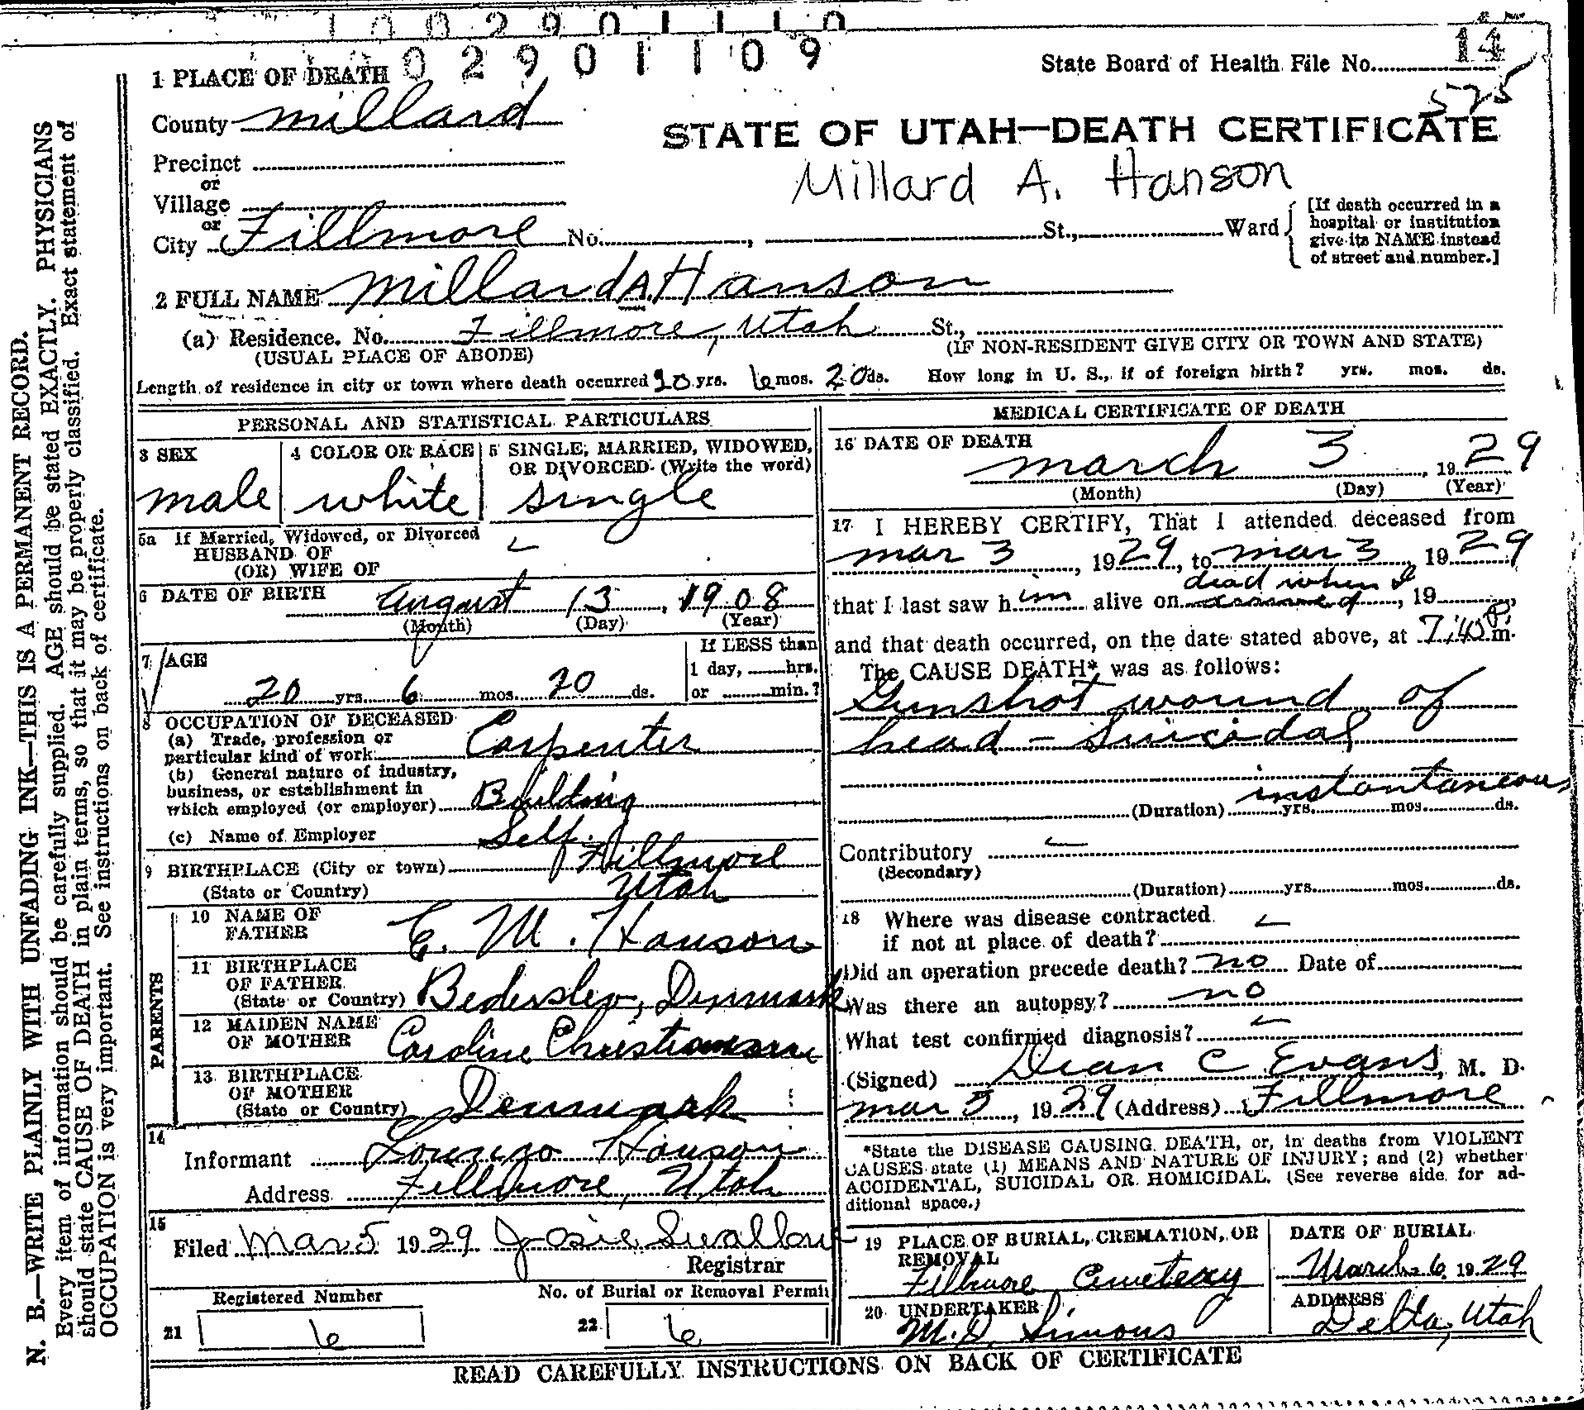 1002901110
02901109
State Board of Health File No. 14
575
1 PLACE OF DEATH
County Millard
STATE OF UTAH—DEATH CERTIFICATE
Precinct
or
Village
Millard A. Hanson
or
City Fillmore No. , St., Ward
[If death occurred in a
hospital or institution
give its NAME instead
of street and number.]
2 FULL NAME Millard A. Hanson
(a) Residence. No. Fillmore, Utah St.,
(USUAL PLACE OF ABODE) (IF NON-RESIDENT GIVE CITY OR TOWN AND STATE)
Length of residence in city or town where death occurred 20 yrs. 6 mos. 20 ds. How long in U. S., if of foreign birth? yrs. mos. ds.
PERSONAL AND STATISTICAL PARTICULARS
3 SEX
male
4 COLOR OR RACE
white
5 SINGLE, MARRIED, WIDOWED,
OR DIVORCED (Write the word)
single
5a If Married, Widowed, or Divorced
HUSBAND OF
(OR) WIFE OF
6 DATE OF BIRTH August 13, 1908
(Month) (Day) (Year)
7 AGE
20 yrs 6 mos. 20 ds.
If LESS than
1 day, hrs.
or min.?
8 OCCUPATION OF DECEASED
(a) Trade, profession or
particular kind of work Carpenter
(b) General nature of industry,
business, or establishment in
which employed (or employer) Building
(c) Name of Employer Self.
9 BIRTHPLACE (City or town) Fillmore
(State or Country) Utah
PARENTS
10 NAME OF
FATHER E. M. Hanson
11 BIRTHPLACE
OF FATHER
(State or Country) Bederslev, Denmark
12 MAIDEN NAME
OF MOTHER Caroline
13 BIRTHPLACE
OF MOTHER
(State or Country) Denmark
14
Informant Lorenzo Hanson
Address Fillmore, Utah
15
Filed Mar 5 1929 Josie Swallow
Registrar
Registered Number
21 6
No. of Burial or Removal Permit
22 6
MEDICAL CERTIFICATE OF DEATH
16 DATE OF DEATH
March 3, 1929
(Month) (Day) (Year)
17 I HEREBY CERTIFY, That I attended deceased from
mar 3, 1929, to mar 3, 1929
dead when I
that I last saw him alive on arrived, 19
and that death occurred, on the date stated above, at 7:40 P.m.
The CAUSE DEATH* was as follows:
Gunshot wound of
head - Suicidal
instantaneous
(Duration) yrs. mos. ds.
Contributory
(Secondary)
(Duration) yrs. mos. ds.
18 Where was disease contracted
if not at place of death?
Did an operation precede death? no Date of
Was there an autopsy? no
What test confirmed diagnosis?
(Signed) Dean C Evans, M. D.
mar 3, 1929 (Address) Fillmore
*State the DISEASE CAUSING DEATH, or, in deaths from VIOLENT
CAUSES state (1) MEANS AND NATURE OF INJURY; and (2) whether
ACCIDENTAL, SUICIDAL OR HOMICIDAL. (See reverse side for ad-
ditional space.)
19 PLACE OF BURIAL, CREMATION, OR
REMOVAL
Fillmore Cemetery
DATE OF BURIAL
March 6 1929
20 UNDERTAKER
Simons
ADDRESS
Delta, Utah
READ CAREFULLY INSTRUCTIONS ON BACK OF CERTIFICATE
N. B.—WRITE PLAINLY WITH UNFADING INK—THIS IS A PERMANENT RECORD.
Every item of information should be carefully supplied. AGE should be stated EXACTLY. PHYSICIANS
should state CAUSE OF DEATH in plain terms, so that it may be properly classified. Exact statement of
OCCUPATION is very important. See instructions on back of certificate.